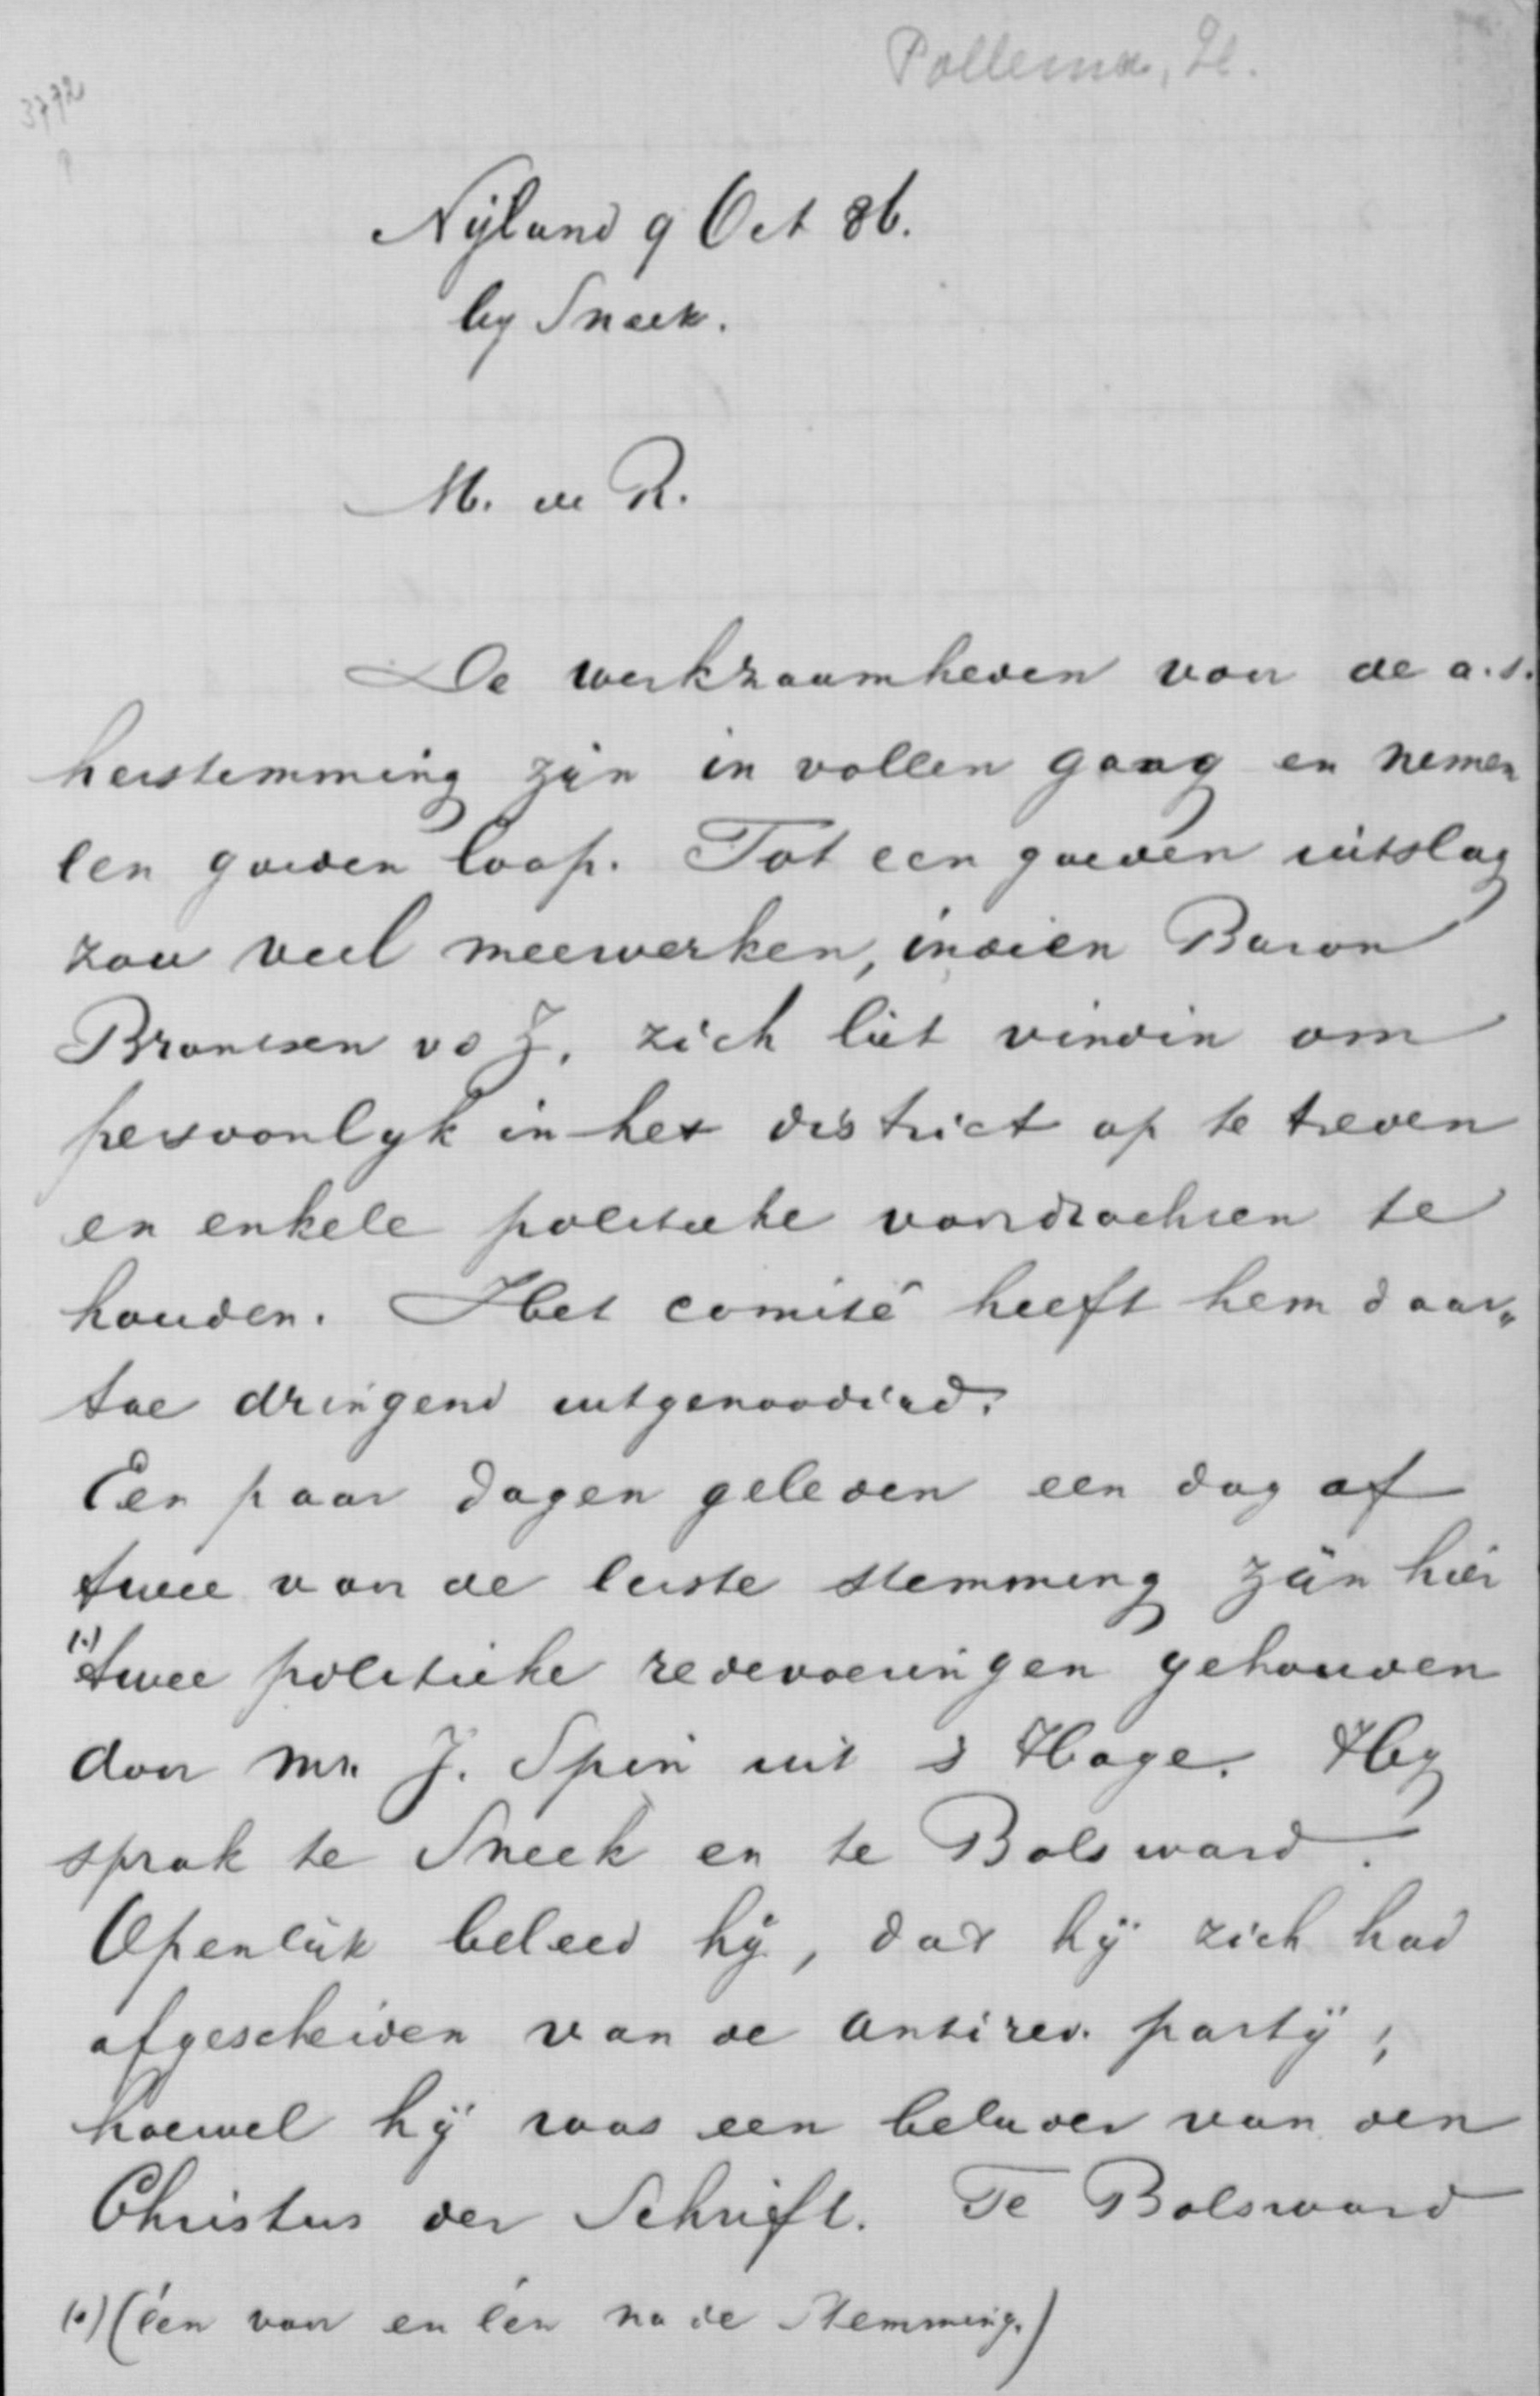 Pollema, H.
3772
Nijland 9 Oct 86.
by Sneek.
M. de R.
De werkzaamheden voor de a.s.
herstemming zijn in vollen gang en nemen
een goeden loop. Tot een goeden uitslag
zou veel meewerken, indien Baron
Brantsen vd Z. zich liet vinden om
persoonlyk in het district op te treden
en enkele politieke voordrachten te
houden. Het comité heeft hem daar„
toe dringend uitgenoodigd.
Een paar dagen geleden een dag of
twee voor de eerste stemming zijn hier
(1.) twee politieke redevoeringen gehouden
door Mr. J. Spin uit s Hage. Hy
sprak te Sneek en te Bolsward.
Openlijk beleed hij, dat hij zich had
afgescheiden van de antirev. partij;
hoewel hij was een belijder van den
Christus der Schrift. Te Bolsward
(1) (één voor en één na de Stemming.)